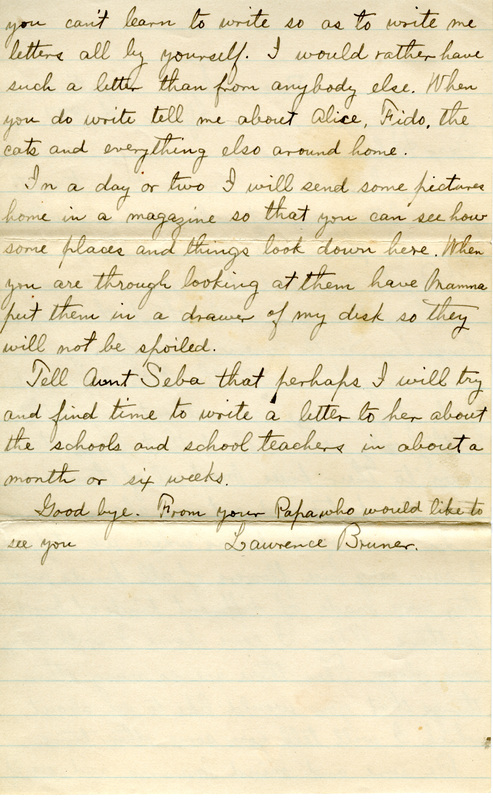 you can't learn to write so as to write me
letters all by yourself. I would rather have
such a letter than from anybody else. When
you do write tell me about Alice, Fido, the
cats and everything elso around home.
In a day or two I will send some pictures
home in a magazine so that you can see how
some places and things look down here. When
you are through looking at them have Mamma
put them in a drawer of my disk so they
will not be spoiled.
Tell Aunt Seba that perhaps I will try
and find time to write a letter to her about
the schools and school teachers in about a
month or six weeks.
Good bye. From your Papa who would like to
see you Lawrence Bruner.